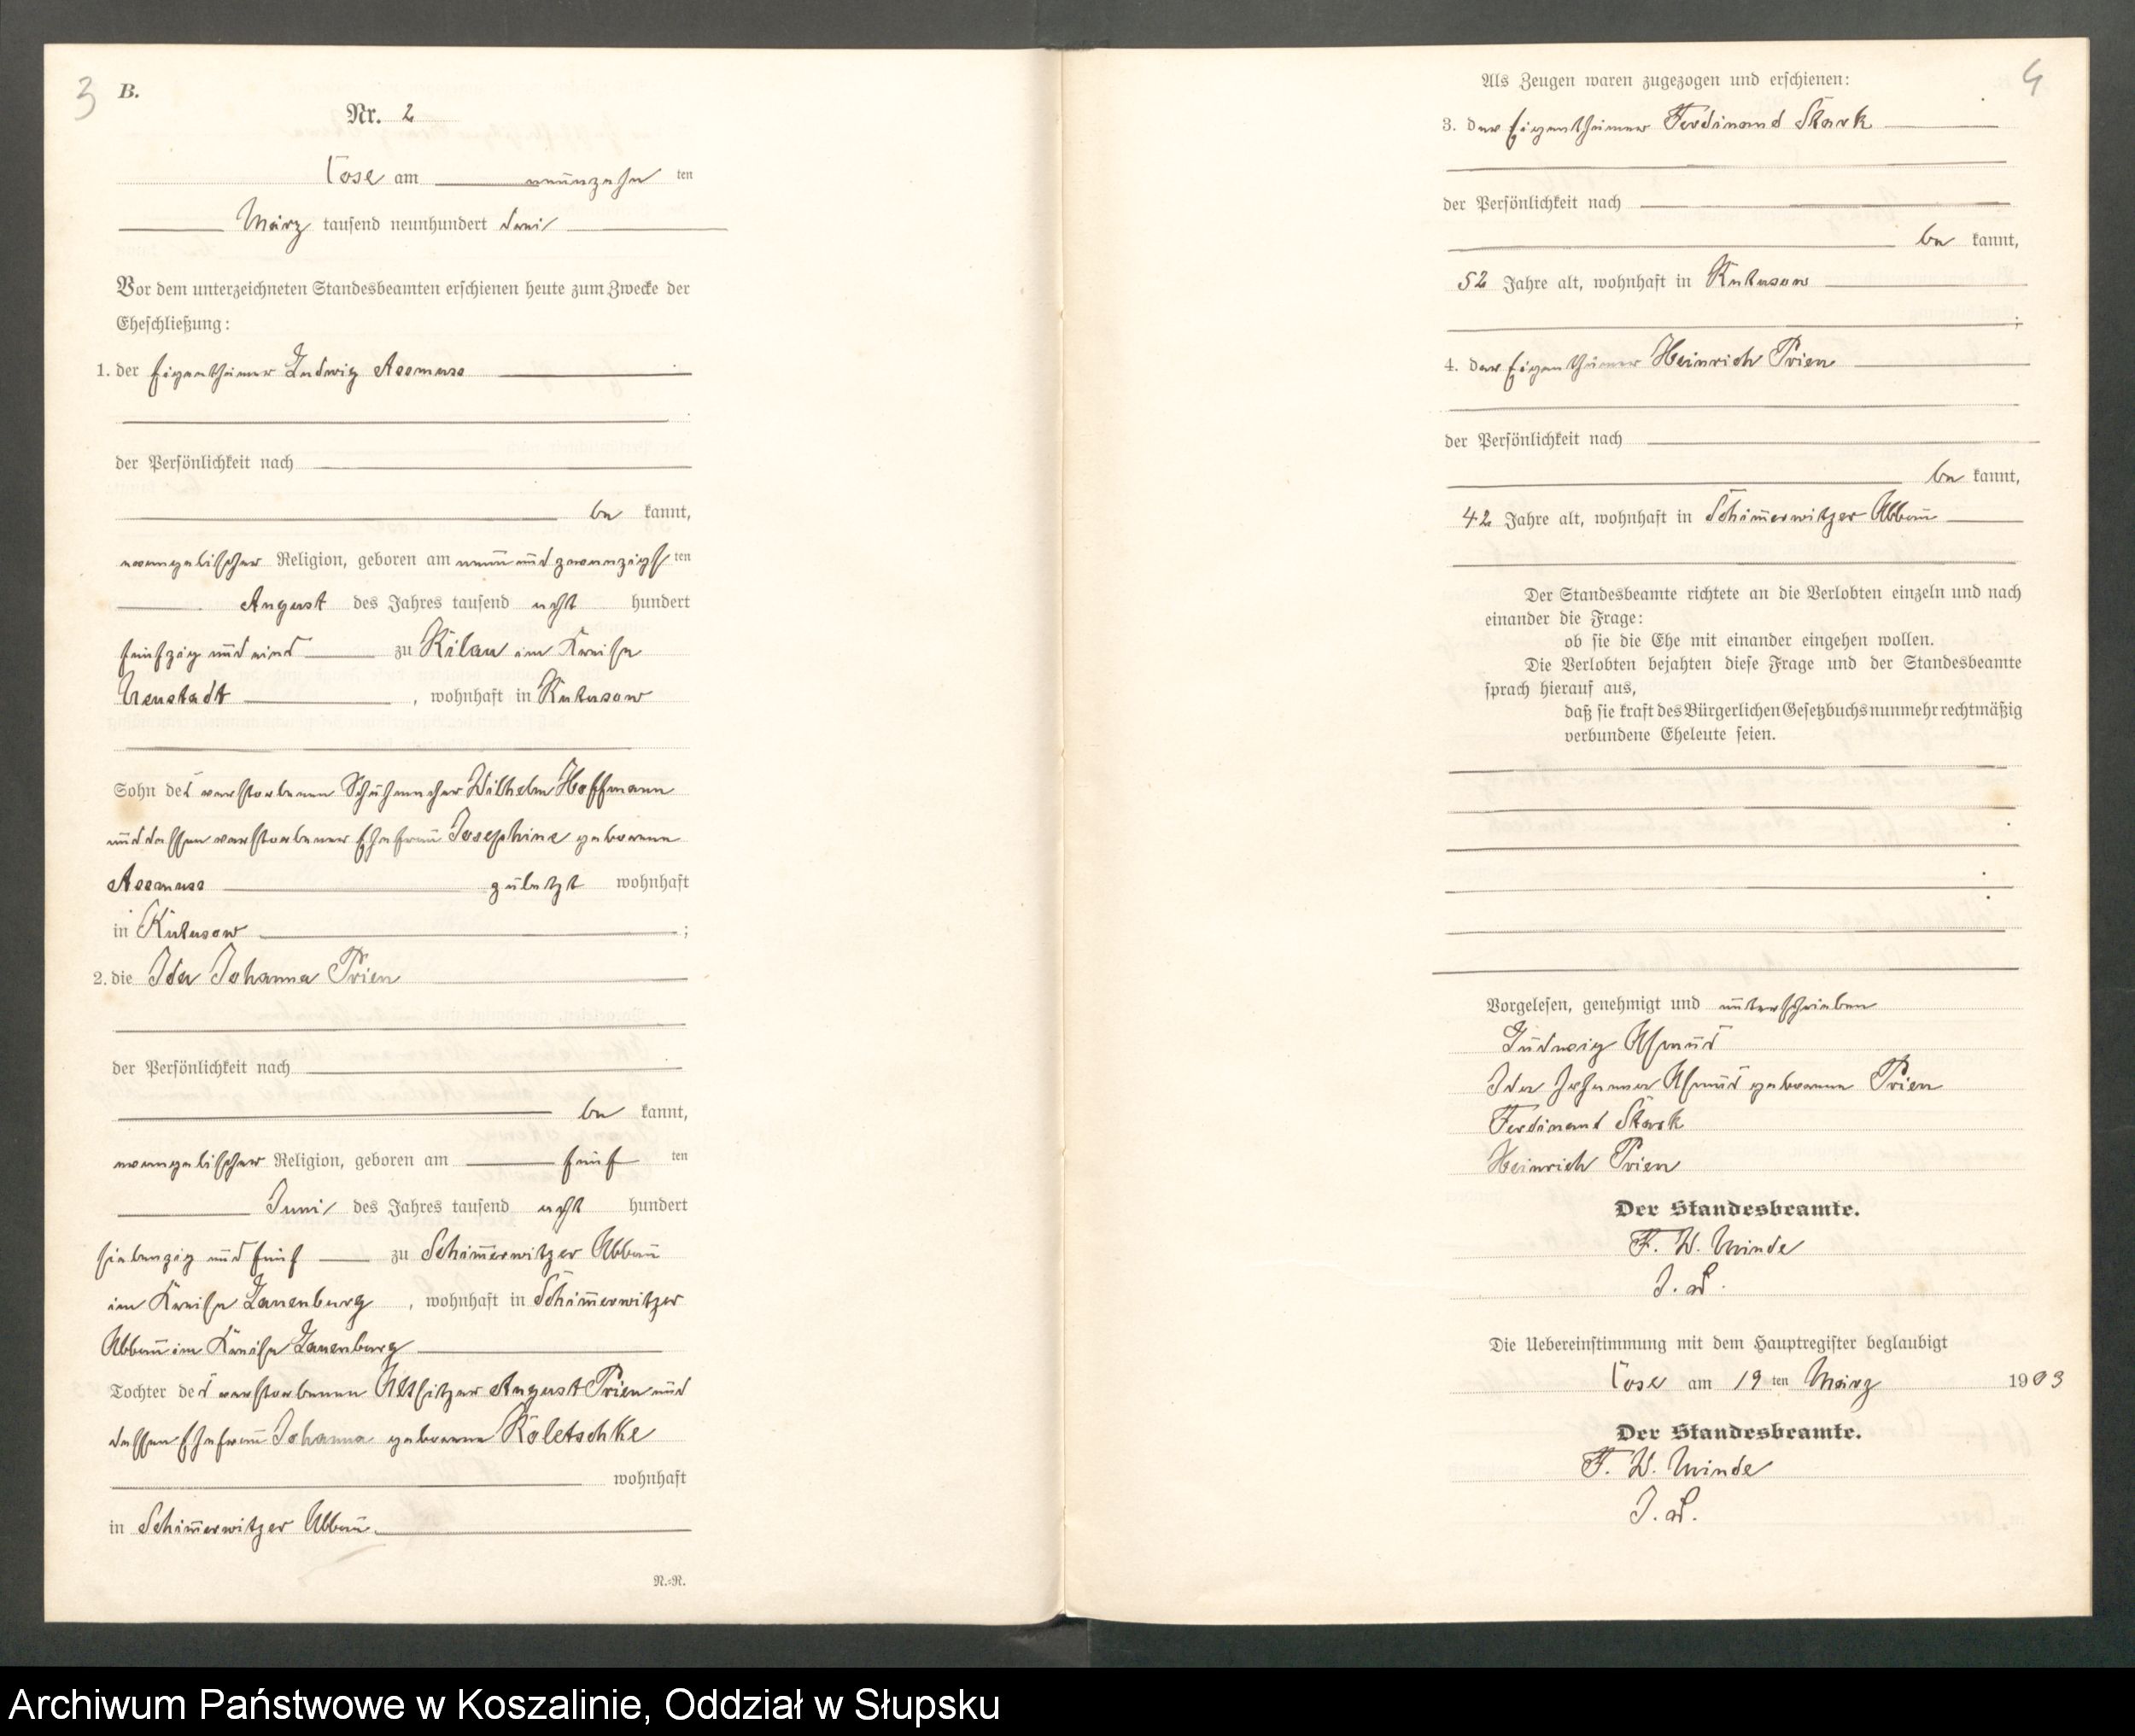 3 B.
Nr. 2
Cose am neunzehn ten
März tausend neunhundert drei
Vor dem unterzeichneten Standesbeamten erschienen heute zum Zwecke der
Eheschließung:
1. der Eigenthümer Ludwig Assmuss
der Persönlichkeit nach
be kannt,
evangelischer Religion, geboren am neunundzwanzigsten
August des Jahres tausend acht hundert
fünfzig und eins zu Kilau im Kreise
Neustadt, wohnhaft in Kutusow
Sohn des verstorbenen Schuhmacher Wilhelm Hoffmann
und dessen verstorbener Ehefrau Josephine geborene
Assmuss zuletzt wohnhaft
in Kutusow;
2. die Ida Johanna Prien
der Persönlichkeit nach
be kannt,
evangelischer Religion, geboren am fünf ten
Juni des Jahres tausend acht hundert
siebenzig und fünf zu Schimmerwitzer Abbau
im Kreise Lauenburg, wohnhaft in Schimmerwitzer
Abbau im Kreise Lauenburg
Tochter des verstorbenen Altsitzer August Prien und
dessen Ehefrau Johanna geborene Koletschke
wohnhaft
in Schimmerwitzer Abbau
N.=R.
4
Als Zeugen waren zugezogen und erschienen:
3. der Eigenthümer Ferdinand Stark
der Persönlichkeit nach
be kannt,
52 Jahre alt, wohnhaft in Kutusow
;
4. der Eigenthümer Heinrich Prien
der Persönlichkeit nach
be kannt,
42 Jahre alt, wohnhaft in Schimmerwitzer Abbau
Der Standesbeamte richtete an die Verlobten einzeln und nach
einander die Frage:
ob sie die Ehe mit einander eingehen wollen.
Die Verlobten bejahten diese Frage und der Standesbeamte
sprach hierauf aus,
daß sie kraft des Bürgerlichen Gesetzbuchs nunmehr rechtmäßig
verbundene Eheleute seien.
Vorgelesen, genehmigt und unterschrieben
Ludwig Asmus
Ida Johanna Asmus geborene Prien
Ferdinand Stark
Heinrich Prien
Der Standesbeamte.
F. W. Minde
Die Uebereinstimmung mit dem Hauptregister beglaubigt
Cose am 19 ten März 1903
Der Standesbeamte.
F. W. Minde
Archiwum Państwowe w Koszalinie, Oddział w Słupsku